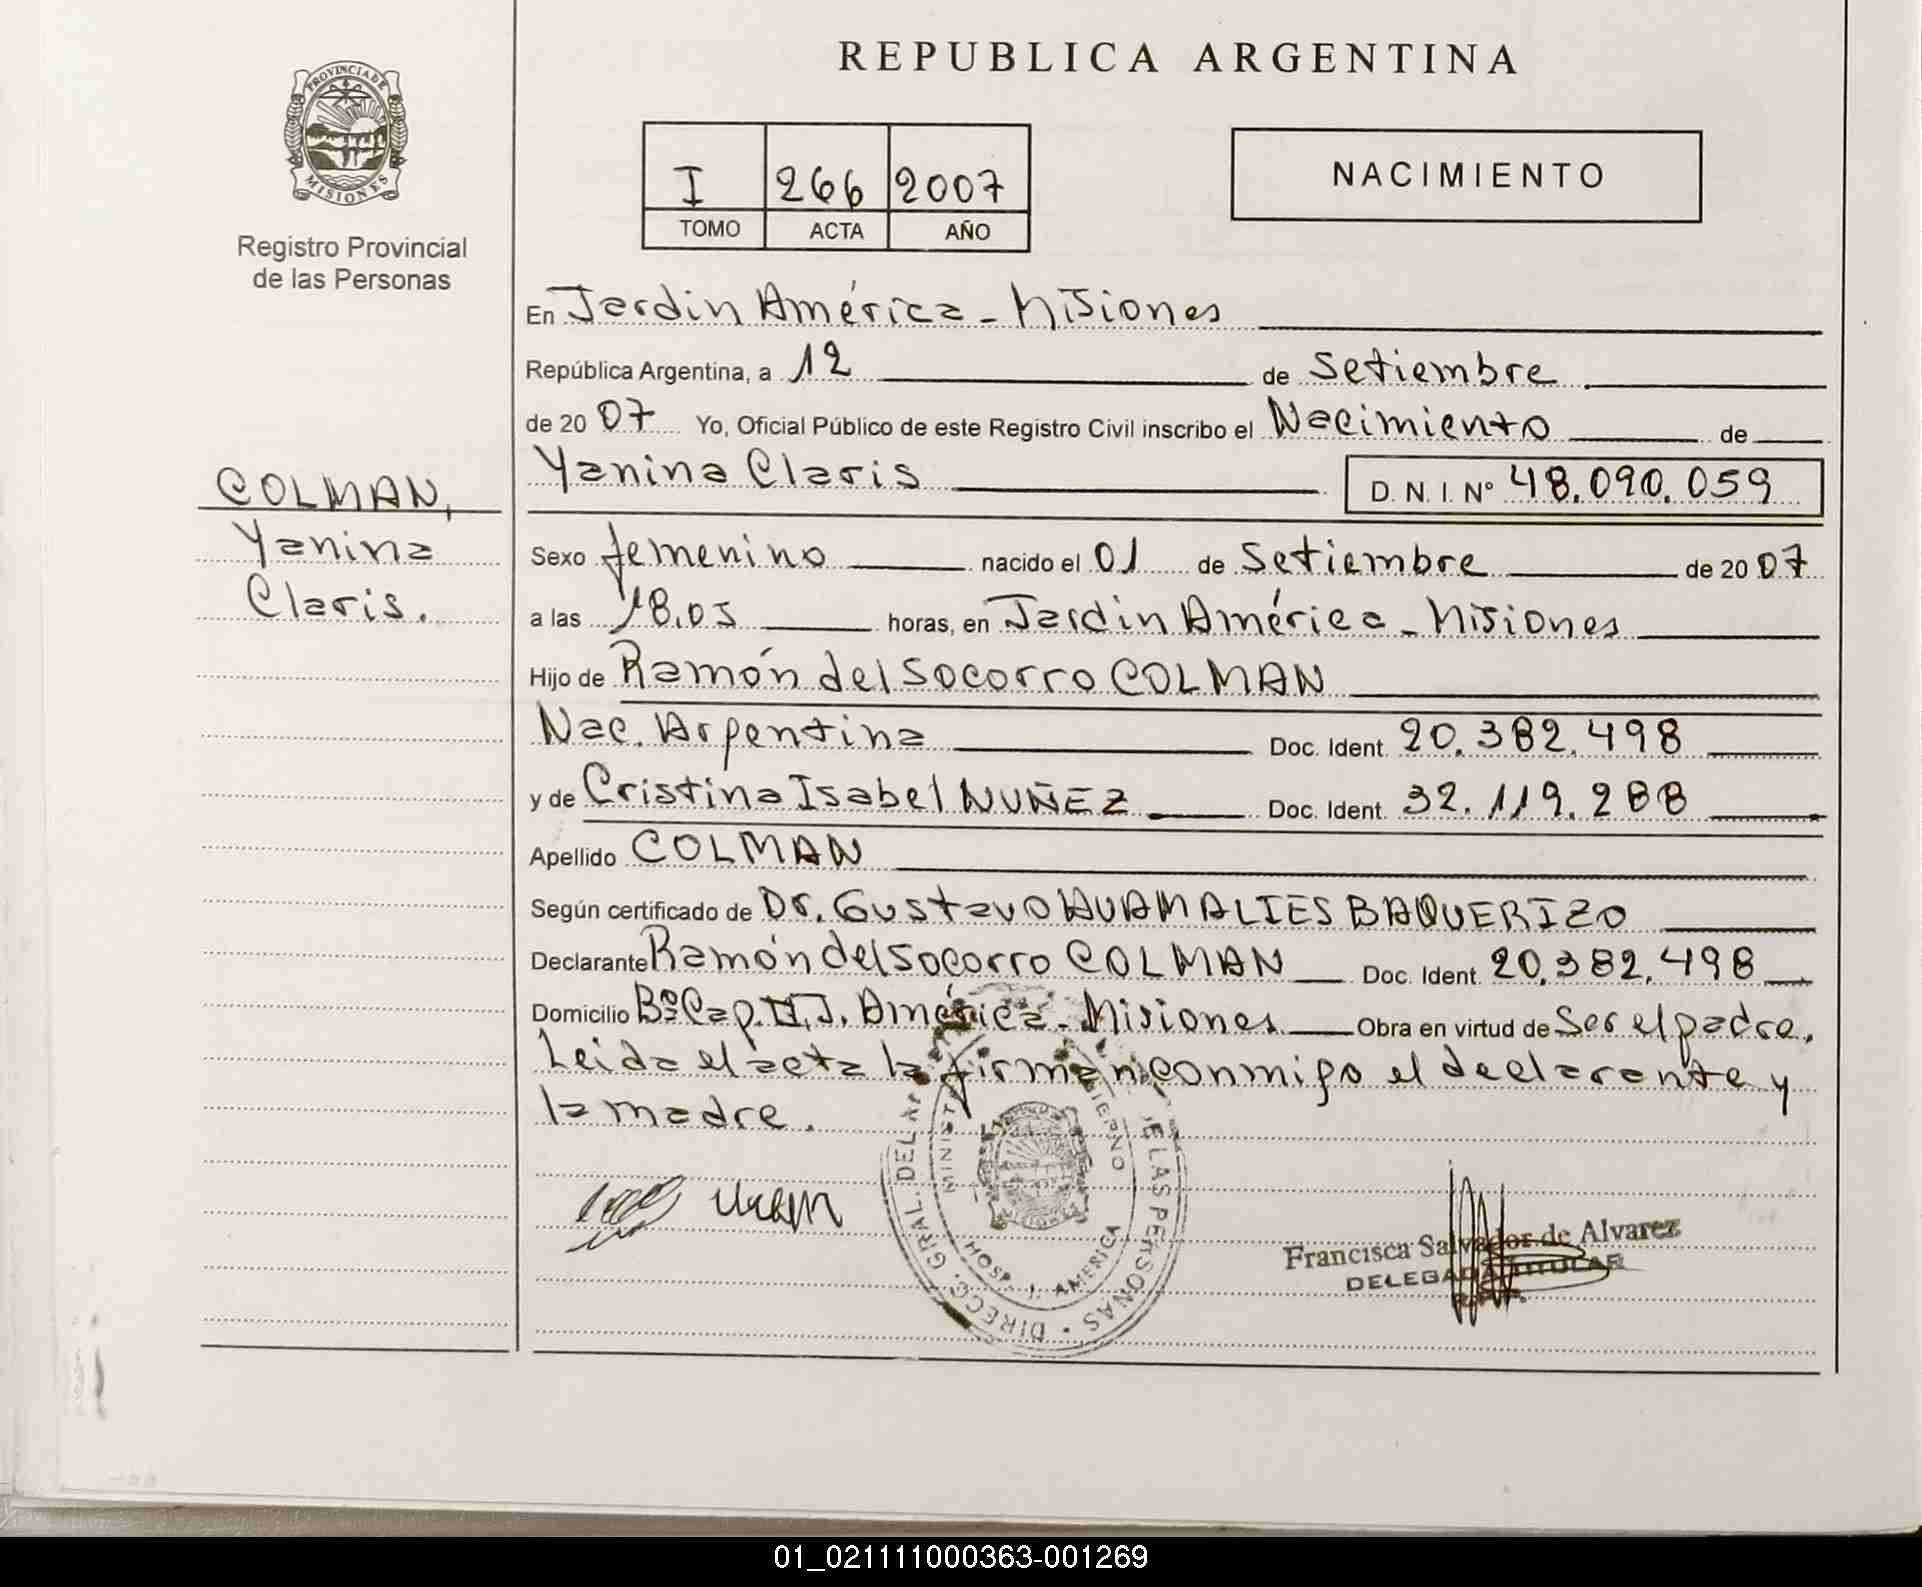 REPUBLICA ARGENTINA
PROVINCIA DE MISIONES
Registro Provincial
de las Personas
I 266 2007
TOMO ACTA AÑO
NACIMIENTO
En Jardin América - Misiones
República Argentina, a 12 de Setiembre
de 20 07 Yo, Oficial Público de este Registro Civil inscribo el Nacimiento de
Yanina Claris D. N. I. Nº 48.090.059
COLMAN,
Yanina
Claris.
Sexo femenino nacido el 01 de Setiembre de 20 07
a las 18.05 horas, en Jardin América - Misiones
Hijo de Ramón del Socorro COLMAN
Nac. Argentina Doc. Ident. 20.382.498
y de Cristina Isabel NUÑEZ Doc. Ident. 32.119.288
Apellido COLMAN
Según certificado de Dr. Gustavo HUAMALIES BAQUERIZO
Declarante Ramón del Socorro COLMAN Doc. Ident. 20.382.498
Domicilio Bº Cap. II, J. América - Misiones Obra en virtud de Ser el padre.
Leida el acta la firman conmigo el declarante y
la madre.
DIRECC. GRAL. DEL DE LAS PERSONAS
HOSP. J. AMERICA
Francisca Salvador de Alvarez
DELEGADA TITULAR
01_021111000363-001269